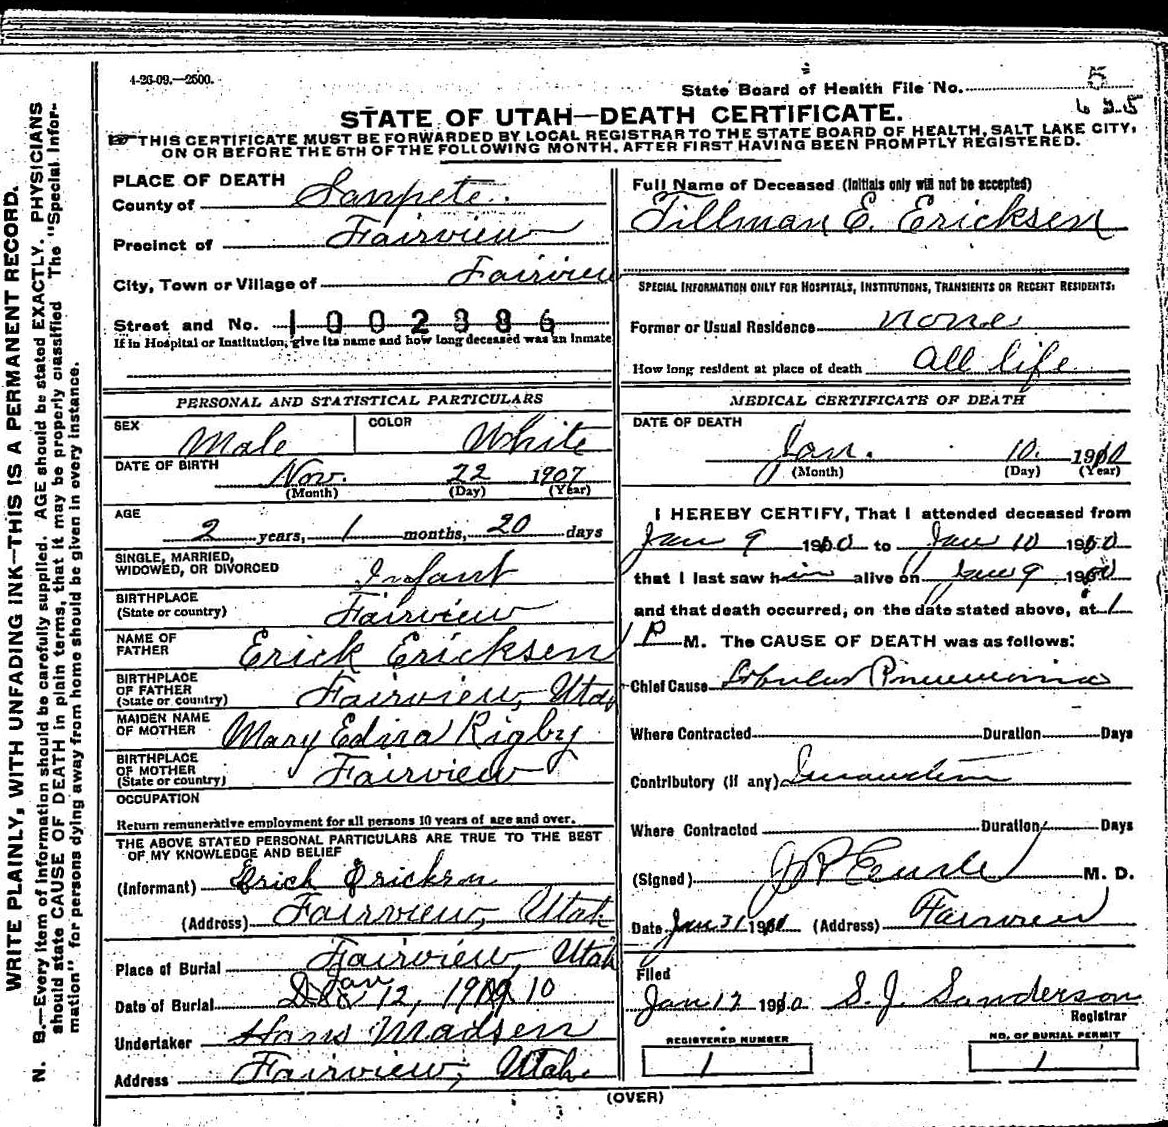 4-26-09.—2500.
State Board of Health File No. 5
625
STATE OF UTAH—DEATH CERTIFICATE.
THIS CERTIFICATE MUST BE FORWARDED BY LOCAL REGISTRAR TO THE STATE BOARD OF HEALTH, SALT LAKE CITY,
ON OR BEFORE THE 5TH OF THE FOLLOWING MONTH, AFTER FIRST HAVING BEEN PROMPTLY REGISTERED.
WRITE PLAINLY, WITH UNFADING INK—THIS IS A PERMANENT RECORD.
N. B.—Every item of information should be carefully supplied. AGE should be stated EXACTLY. PHYSICIANS
should state CAUSE OF DEATH in plain terms, that it may be properly classified The "Special Infor-
mation" for persons dying away from home should be given in every instance.
PLACE OF DEATH
County of Sanpete.
Precinct of Fairview
City, Town or Village of Fairview
Street and No. 1002386
If in Hospital or Institution, give its name and how long deceased was an inmate
PERSONAL AND STATISTICAL PARTICULARS
SEX Male COLOR White
DATE OF BIRTH Nov. 22 1907
(Month) (Day) (Year)
AGE
2 years, 1 months, 20 days
SINGLE, MARRIED,
WIDOWED, OR DIVORCED Infant
BIRTHPLACE
(State or country) Fairview
NAME OF
FATHER Erick Ericksen
BIRTHPLACE
OF FATHER
(State or country) Fairview, Utah
MAIDEN NAME
OF MOTHER Mary Edina Rigby
BIRTHPLACE
OF MOTHER
(State or country) Fairview
OCCUPATION
Return remunerative employment for all persons 10 years of age and over.
THE ABOVE STATED PERSONAL PARTICULARS ARE TRUE TO THE BEST
OF MY KNOWLEDGE AND BELIEF
(Informant) Erick Ericksen
(Address) Fairview, Utah
Place of Burial Fairview, Utah
Date of Burial Jan 12, 1910
Undertaker Hans Madsen
Address Fairview, Utah.
Full Name of Deceased (Initials only will not be accepted)
Tillman E. Ericksen
SPECIAL INFORMATION ONLY FOR HOSPITALS, INSTITUTIONS, TRANSIENTS OR RECENT RESIDENTS:
Former or Usual Residence none
How long resident at place of death all life
MEDICAL CERTIFICATE OF DEATH
DATE OF DEATH
Jan. 10. 1910
(Month) (Day) (Year)
I HEREBY CERTIFY, That I attended deceased from
Jan 9 1910 to Jan 10 1910
that I last saw him alive on Jan 9 1910
and that death occurred, on the date stated above, at 1
P M. The CAUSE OF DEATH was as follows:
Chief Cause Lobular Pneumonia
Where Contracted Duration Days
Contributory (if any)
Where Contracted Duration Days
(Signed) M. D.
Date Jan 31 1910 (Address) Fairview
Filed
Jan 12 1910 S. J. Sanderson
Registrar
REGISTERED NUMBER
1
NO. OF BURIAL PERMIT
1
(OVER)